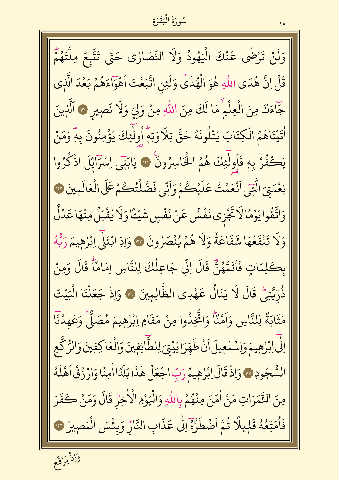 سُورَةُ الْبَقَرَةِ
وَلَنْ تَرْضٰى عَنْكَ الْيَهُودُ وَلَا النَّصَارٰى حَتّٰى تَتَّبِعَ مِلَّتَهُمْ
قُلْ اِنَّ هُدَى اللّٰهِ هُوَ الْهُدٰى وَلَئِنِ اتَّبَعْتَ اَهْوَٓاءَهُمْ بَعْدَ الَّذِى
جَٓاءَكَ مِنَ الْعِلْمِ مَا لَكَ مِنَ اللّٰهِ مِنْ وَلِيٍّ وَلَا نَصِيرٍ ۝ اَلَّذِينَ
اٰتَيْنَاهُمُ الْكِتَابَ يَتْلُونَهُ حَقَّ تِلَاوَتِهِ اُولٰٓئِكَ يُؤْمِنُونَ بِهِ وَمَنْ
يَكْفُرْ بِهِ فَاُولٰٓئِكَ هُمُ الْخَاسِرُونَ ۝ يَا بَنِٓى اِسْرَٓائِلَ اذْكُرُوا
نِعْمَتِىَ الَّتِٓى اَنْعَمْتُ عَلَيْكُمْ وَاَنِّى فَضَّلْتُكُمْ عَلَى الْعَالَمِينَ ۝
وَاتَّقُوا يَوْمًا لَا تَجْزِى نَفْسٌ عَنْ نَفْسٍ شَيْئًا وَلَا يُقْبَلُ مِنْهَا عَدْلٌ
وَلَا تَنْفَعُهَا شَفَاعَةٌ وَلَا هُمْ يُنْصَرُونَ ۝ وَاِذِ ابْتَلٰٓى اِبْرٰهِيمَ رَبُّهُ
بِكَلِمَاتٍ فَاَتَمَّهُنَّ قَالَ اِنِّى جَاعِلُكَ لِلنَّاسِ اِمَامًا قَالَ وَمِنْ
ذُرِّيَّتِى قَالَ لَا يَنَالُ عَهْدِى الظَّالِمِينَ ۝ وَاِذْ جَعَلْنَا الْبَيْتَ
مَثَابَةً لِلنَّاسِ وَاَمْنًا وَاتَّخِذُوا مِنْ مَقَامِ اِبْرٰهِيمَ مُصَلًّى وَعَهِدْنَٓا
اِلٰٓى اِبْرٰهِيمَ وَاِسْمٰعِيلَ اَنْ طَهِّرَا بَيْتِىَ لِلطَّٓائِفِينَ وَالْعَاكِفِينَ وَالرُّكَّعِ
السُّجُودِ ۝ وَاِذْ قَالَ اِبْرٰهِيمُ رَبِّ اجْعَلْ هٰذَا بَلَدًا اٰمِنًا وَارْزُقْ اَهْلَهُ
مِنَ الثَّمَرَاتِ مَنْ اٰمَنَ مِنْهُمْ بِاللّٰهِ وَالْيَوْمِ الْاٰخِرِ قَالَ وَمَنْ كَفَرَ
فَاُمَتِّعُهُ قَلِيلًا ثُمَّ اَضْطَرُّهُٓ اِلٰى عَذَابِ النَّارِ وَبِئْسَ الْمَصِيرُ ۝
وَاِذْ يَرْفَعُ